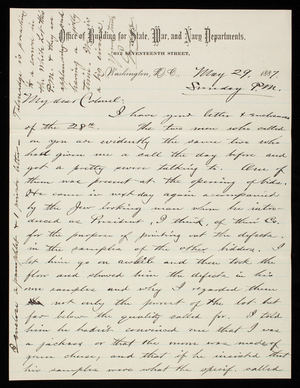 Office of Building for State, War, and Navy Departments.
SEVENTEENTH STREET,
Washington, D.C. May 29, 1887.
Sunday P.M.
My dear Colonel:
I have your letter & enclosures
of the 28th. The two men who called
on you are evidently the same two who
had given me a call the day before and
got a pretty severe talking to. One of
them was present at the opening of bids.
He came next day again accompanied
by the Jew looking man whom he intro-
duced as President, I think, of their Co.
for the purpose of pointing out the defects
in the samples of the other bidders. I
let him go on awhile and then took the
floor and showed him the defects in his
own samples and why I regarded them
not only the poorest of the lot but
far below the quality called for. I told
him he hadn't convinced me that I was
a jackass or that the moon was made of
green cheese, and that if he insisted that
his samples were what the specif. called